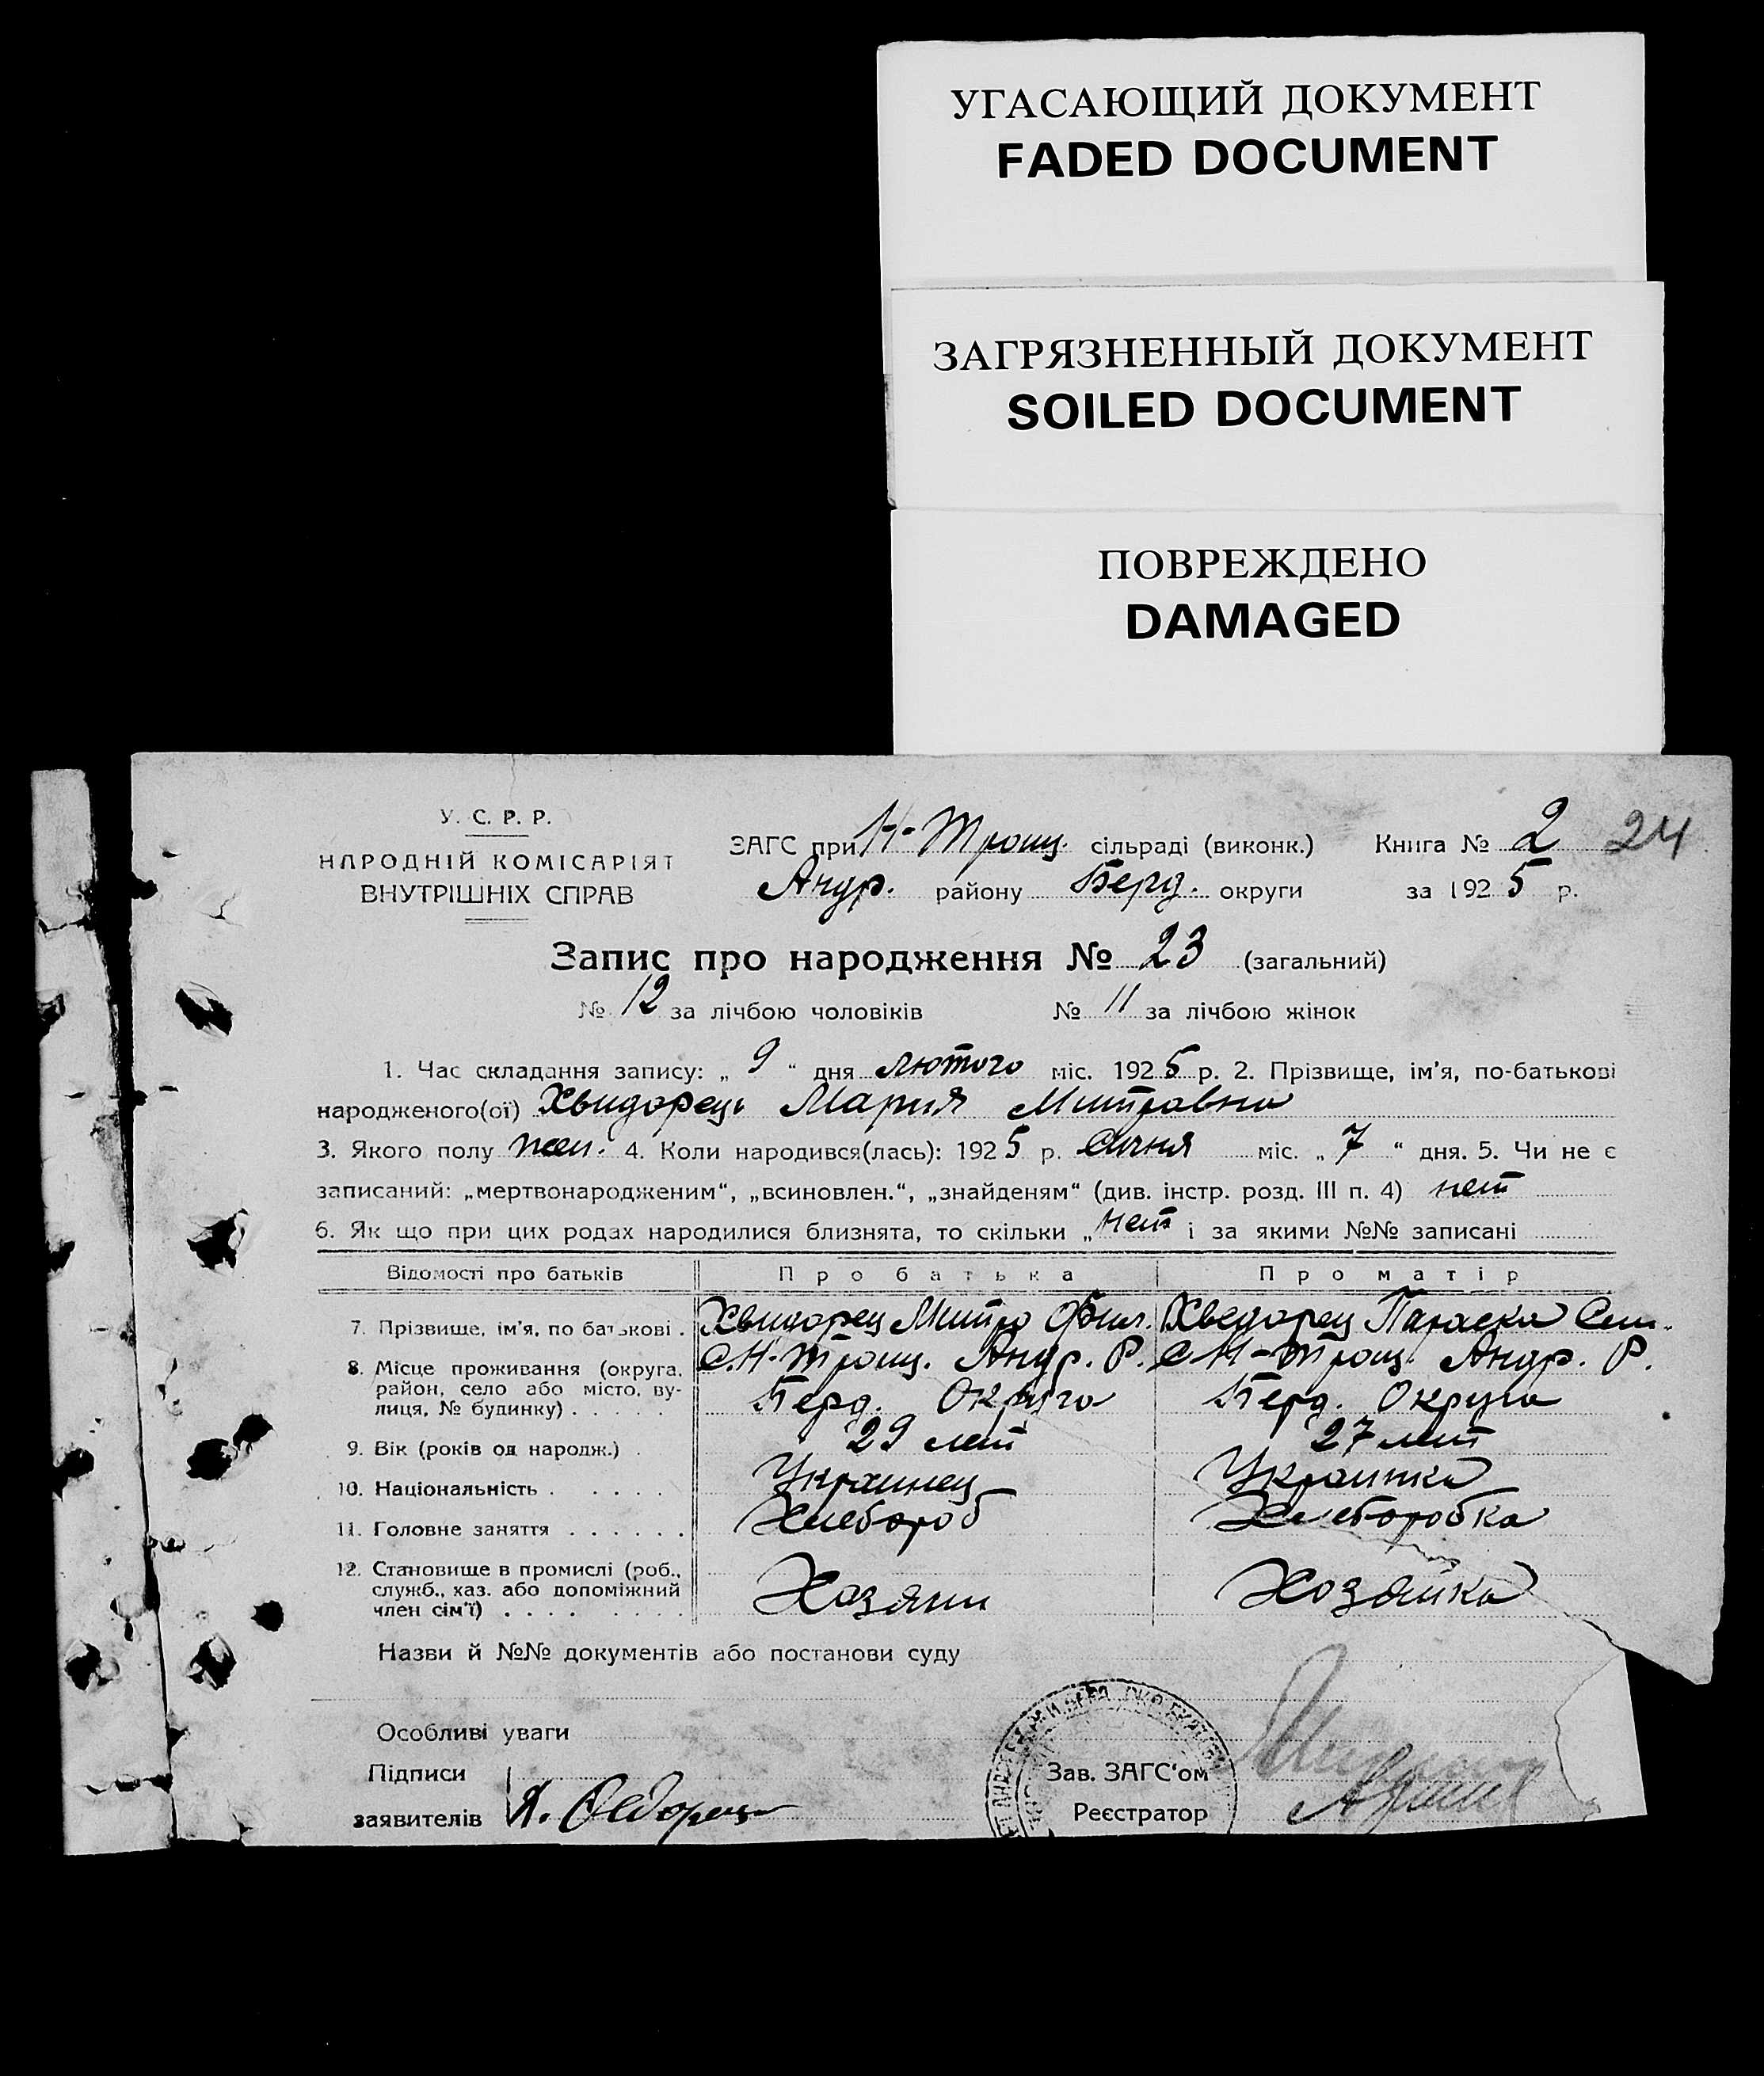 УГАСАЮЩИЙ ДОКУМЕНТ
FADED DOCUMENT
ЗАГРЯЗНЕННЫЙ ДОКУМЕНТ
SOILED DOCUMENT
ПОВРЕЖДЕНО
DAMAGED
У. С. Р. Р.
НАРОДНІЙ КОМІСАРІЯТ
ВНУТРІШНІХ СПРАВ
ЗАГС при Н-Трощ. сільраді (виконк.) Книга № 2 24
Андр. району Берд. округи за 1925 р.
Запис про народження № 23 (загальний)
№ 12 за лічбою чоловіків № 11 за лічбою жінок
1. Час складання запису: „ 9 “ дня лютого міс. 1925 р. 2. Прізвище, ім'я, по-батькові
народженого(ої) Хвидорець Мария Митровна
3. Якого полу жен. 4. Коли народився(лась): 1925 р. Січня міс. „ 7 “ дня. 5. Чи не є
записаний: „мертвонародженим“, „всиновлен.“, „знайденям“ (див. інстр. розд. III п. 4) нет
6. Як що при цих родах народилися близнята, то скільки „ нет і за якими №№ записані
Відомості про батьків Про батька Про матір
7. Прізвище, ім'я, по батькові . Хвидорец Митро Фил. Хведорец Параска Сем.
8. Місце проживання (округа, С. Н-Трощ. Андр. Р. С Н-Трощ. Андр. Р.
район, село або місто, ву-
лиця, № будинку) . . . . . Берд. Округа Берд. Округа
9. Вік (років од народж.) . 29 лет 27 лет
10. Національність . . . . . Украинец Украинка
11. Головне заняття . . . . . . Хлебороб Хлеборобка
12. Становище в промислі (роб.,
служб., хаз. або допоміжний
член сім'ї) . . . . . . . . Хозяин Хозяйка
Назви й №№ документів або постанови суду
Особливі уваги
Підписи Зав. ЗАГС'ом
заявителів Реєстратор